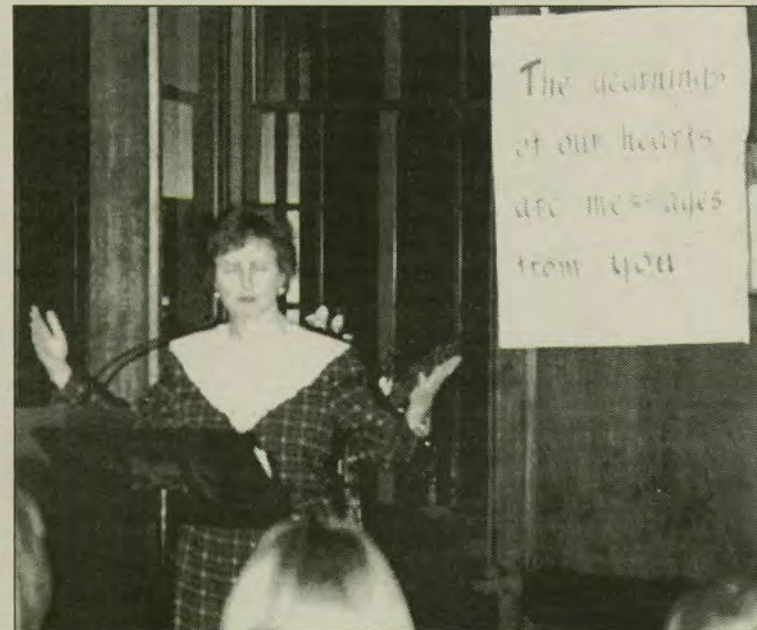 The yearnings
of our hearts
are messages
from you